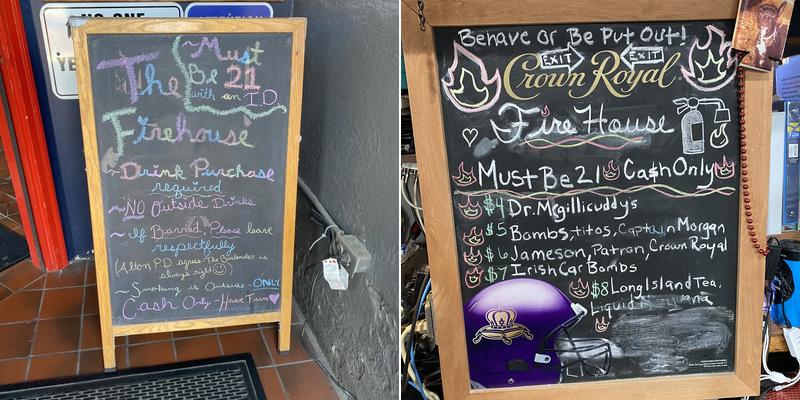 NO ONE
YE
Must
Be 21
with an I.D.
The
Firehouse
~Drink Purchase
required
~NO Outside Drinks
~If Barred, Please leave
respectfully
(Alton P.D. agree-The Bartender is
always right)
~Smoking is Outside-ONLY
Cash Only-Have Fun
Behave Or Be Put Out!
EXIT EXIT
Crown Royal
Fire House
Must Be 21 Ca$h Only
$4 Dr. Mcgillicuddys
$5 Bombs, titos, Captain Morgan
$6 Jameson, Patron, Crown Royal
$7 Irish Car Bombs
$8 Long Island Tea,
Liquid